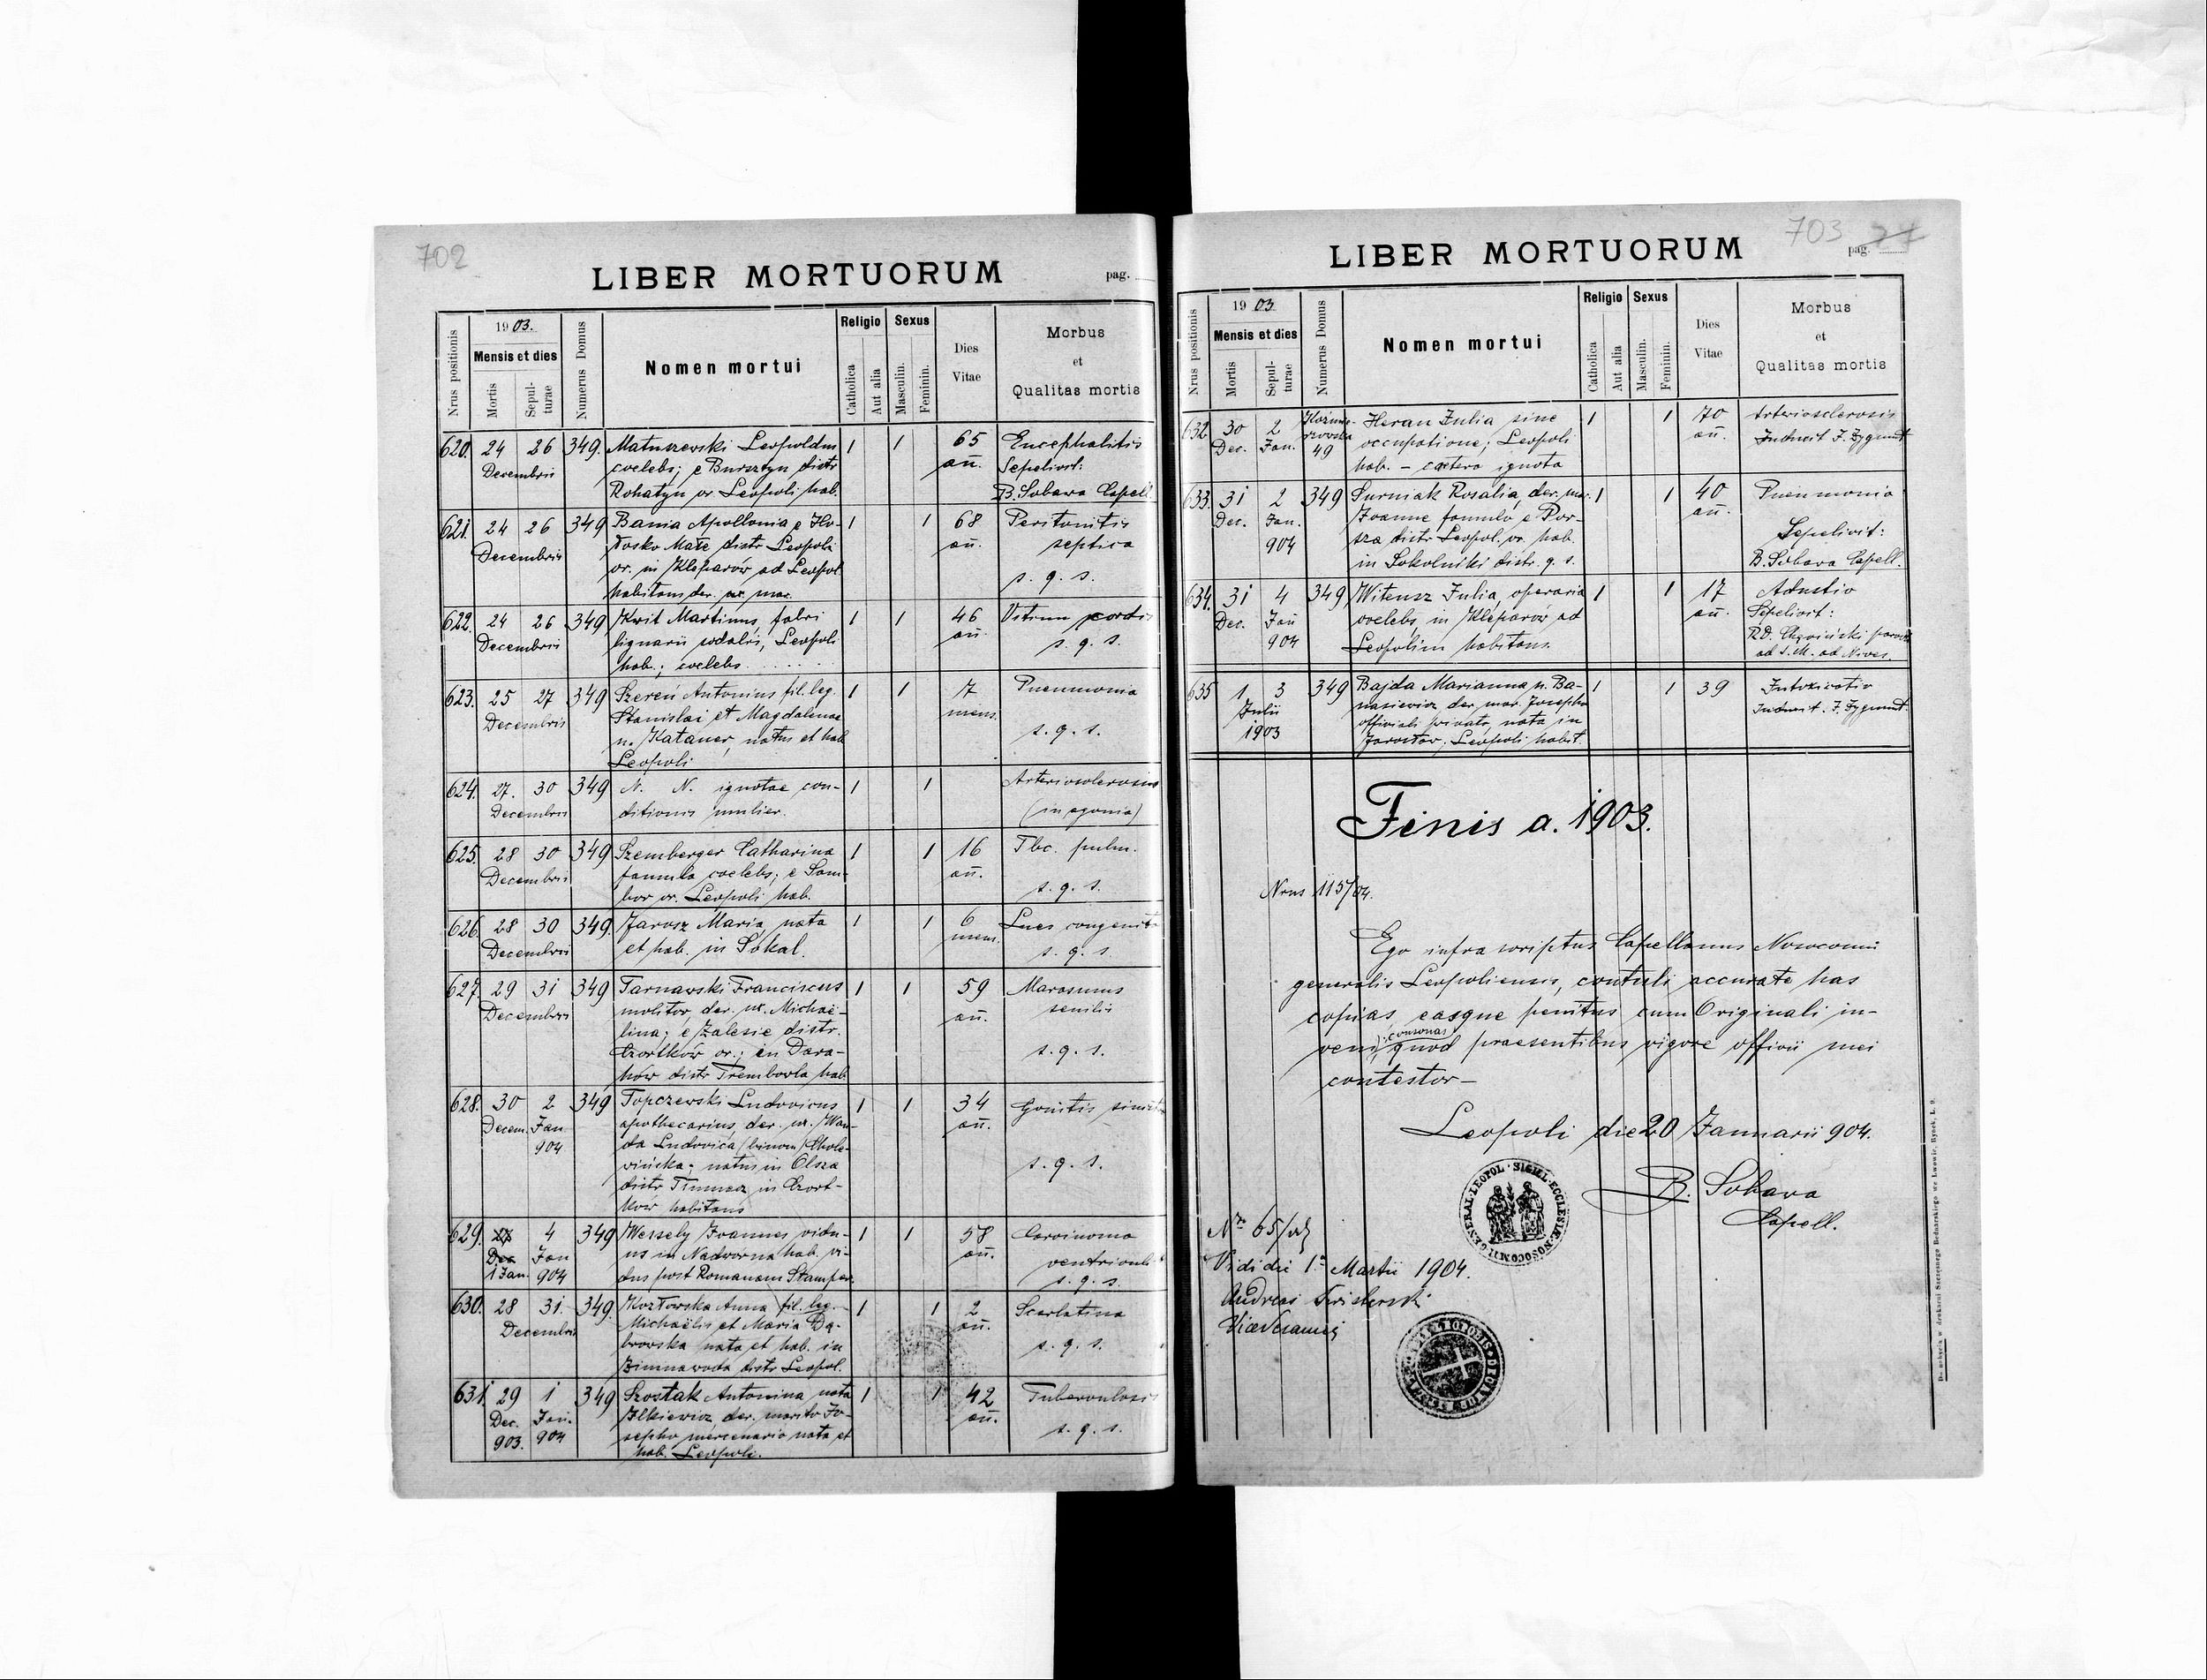 702
LIBER MORTUORUM
pag.
Nrus positionis
1903.
Mensis et dies
Mortis
Sepulturae
Numerus Domus
Nomen mortui
Religio
Catholica
Aut alia
Sexus
Masculin.
Feminin.
Dies Vitae
Morbus
et
Qualitas mortis
620. 24 26 349. Matuszewski Leopoldus 1 1 65 Encephalitis
Decembris coelebs; e Bursztyn distr. añ. Sepelivit:
Rohatyn or. Leopoli hab. B. Sobawa Capell.
621. 24 26 349 Bania Apollonia e Ho- 1 1 68 Peritonitis
Decembris łosko Małe distr. Leopoli añ. septica
or. in Kleparów ad Leopol. s. q. s.
habitans der. mar.
622. 24 26 349 Kwit Martinus, fabri 1 1 46 Vitium cordis
Decembris lignarii sodalis, Leopoli añ. s. q. s.
hab.; coelebs
623. 25 27 349 Szereń Antonius fil. leg. 1 1 7 Pneumonia
Decembris Stanislai et Magdalenae mens.
n. Kataner, natus et hab. s. q. s.
Leopoli
624. 27. 30 349 N. N. ignotae con- 1 1 Arteriosclerosis
Decembris ditionis mulier. (in agonia)
625. 28 30 349 Szemberger Catharina 1 1 16 Tbc. pulm.
Decembris famula coelebs; e Sam- añ.
bor or. Leopoli hab. s. q. s.
626. 28 30 349. Jarosz Maria, nata 1 1 6 Lues congenita
Decembris et hab. in Sokal. mens. s. q. s.
627. 29 31 349 Tarnawski Franciscus 1 1 59 Marasmus
Decembris molitor, der. ux. Michaë- añ. senilis
lina; e Zalesie distr.
Czortków or.; in Dara- s. q. s.
hów distr. Trembowla hab.
628. 30 2 349 Topczewski Ludovicus 1 1 34 Gonitis sinistra
Decem. Jan. apothecarius, der. ux. Wan- añ.
904 da Ludovica (binom.) Chole-
wińska; natus in Olsza s. q. s.
distr. Tłumacz in Czort-
ków habitans
629. 27 4 349 Wessely Joannes vidu- 1 1 58 Carcinoma
Dec. Jan us in Nadworna hab. vi- añ. ventriculi
1 Jan. 904 dus post Romanam Stamper s. q. s.
630. 28 31. 349. Kozłowska Anna fil. leg. 1 1 2 Scarlatina
Decembris Michaëlis et Maria Dą- añ.
browska nata et hab. in s. q. s.
Zimnawoda distr. Leopol.
631. 29 1 349 Szostak Antonina nata 1 1 42 Tuberculosis
Dec. Jan. Ilkiewicz, der. marito Jo- añ.
903. 904 sepho mercenario nata et s. q. s.
hab. Leopoli.
703
LIBER MORTUORUM
pag. 27
Nrus positionis
1903
Mensis et dies
Mortis
Sepulturae
Numerus Domus
Nomen mortui
Religio
Catholica
Aut alia
Sexus
Masculin.
Feminin.
Dies Vitae
Morbus
et
Qualitas mortis
632 30 2 49 Heran Julia sine 1 1 70 Arteriosclerosis
Dec. Jan. occupatione; Leopoli añ. Induxit J. Zygmunt
hab. – caetera ignota
633. 31 2 349 Surniak Rosalia, der. mar. 1 1 40 Pneumonia
Dec. Jan. Joanne famulo e Por- añ.
904 sza distr. Leopol. or. hab. Sepelivit:
in Sokolniki distr. q. s. B. Sobawa Capell.
634. 31 4 349 Witeusz Julia, operaria 1 1 17 Adustio
Dec. Jan coelebs, in Kleparów ad añ. Sepelivit:
904 Leopolim habitans. RD.
ad S. M. ad Nives.
635 1 3 349 Bajda Marianna n. Ba- 1 1 39 Intoxicatio
Julii nasiewicz der. mar. Josepho Induxit. J. Zygmunt.
1903 officiali privato, nata in
Jarosław; Leopoli habit.
Finis a. 1903.
Nrus 115/04.
Ego infra scriptus Capellanus Nosocomii
generalis Leopoliensis, contuli accurate has
copias easque penitus cum Originali in-
veni, consonas quod praesentibus vigore officii mei
contestor –
Leopoli die 20 Januarii 904.
B. Sobawa
Capell.
SIGILL·ECCLESIAE·NOSOCOMII·GENERAL·LEOPOL·
Nr. 65/04
Vidi die 1a Martii 1904.
ViceDecanus